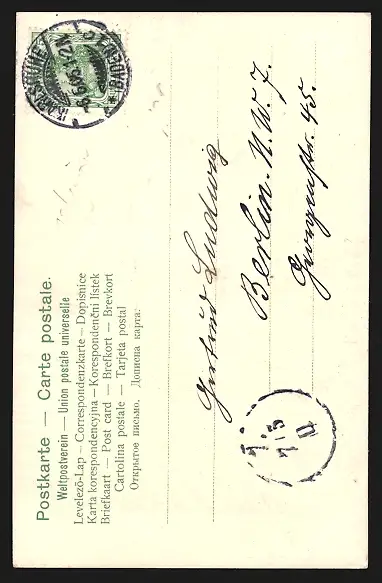 Postkarte — Carte postale.
Weltpostverein — Union postale universelle
Levelező-Lap — Correspondenzkarte — Dopisnice
Karta korespondencyjna — Korespondenční lístek
Briefkaart — Post card — Brefkort — Brevkort
Cartolina postale — Tarjeta postal
Открытое письмо. Дописна карта:
KARLSRUHE
(BADEN)
Gertrud Ludwig
Berlin. N. W. 7.
Georgenstr. 45.